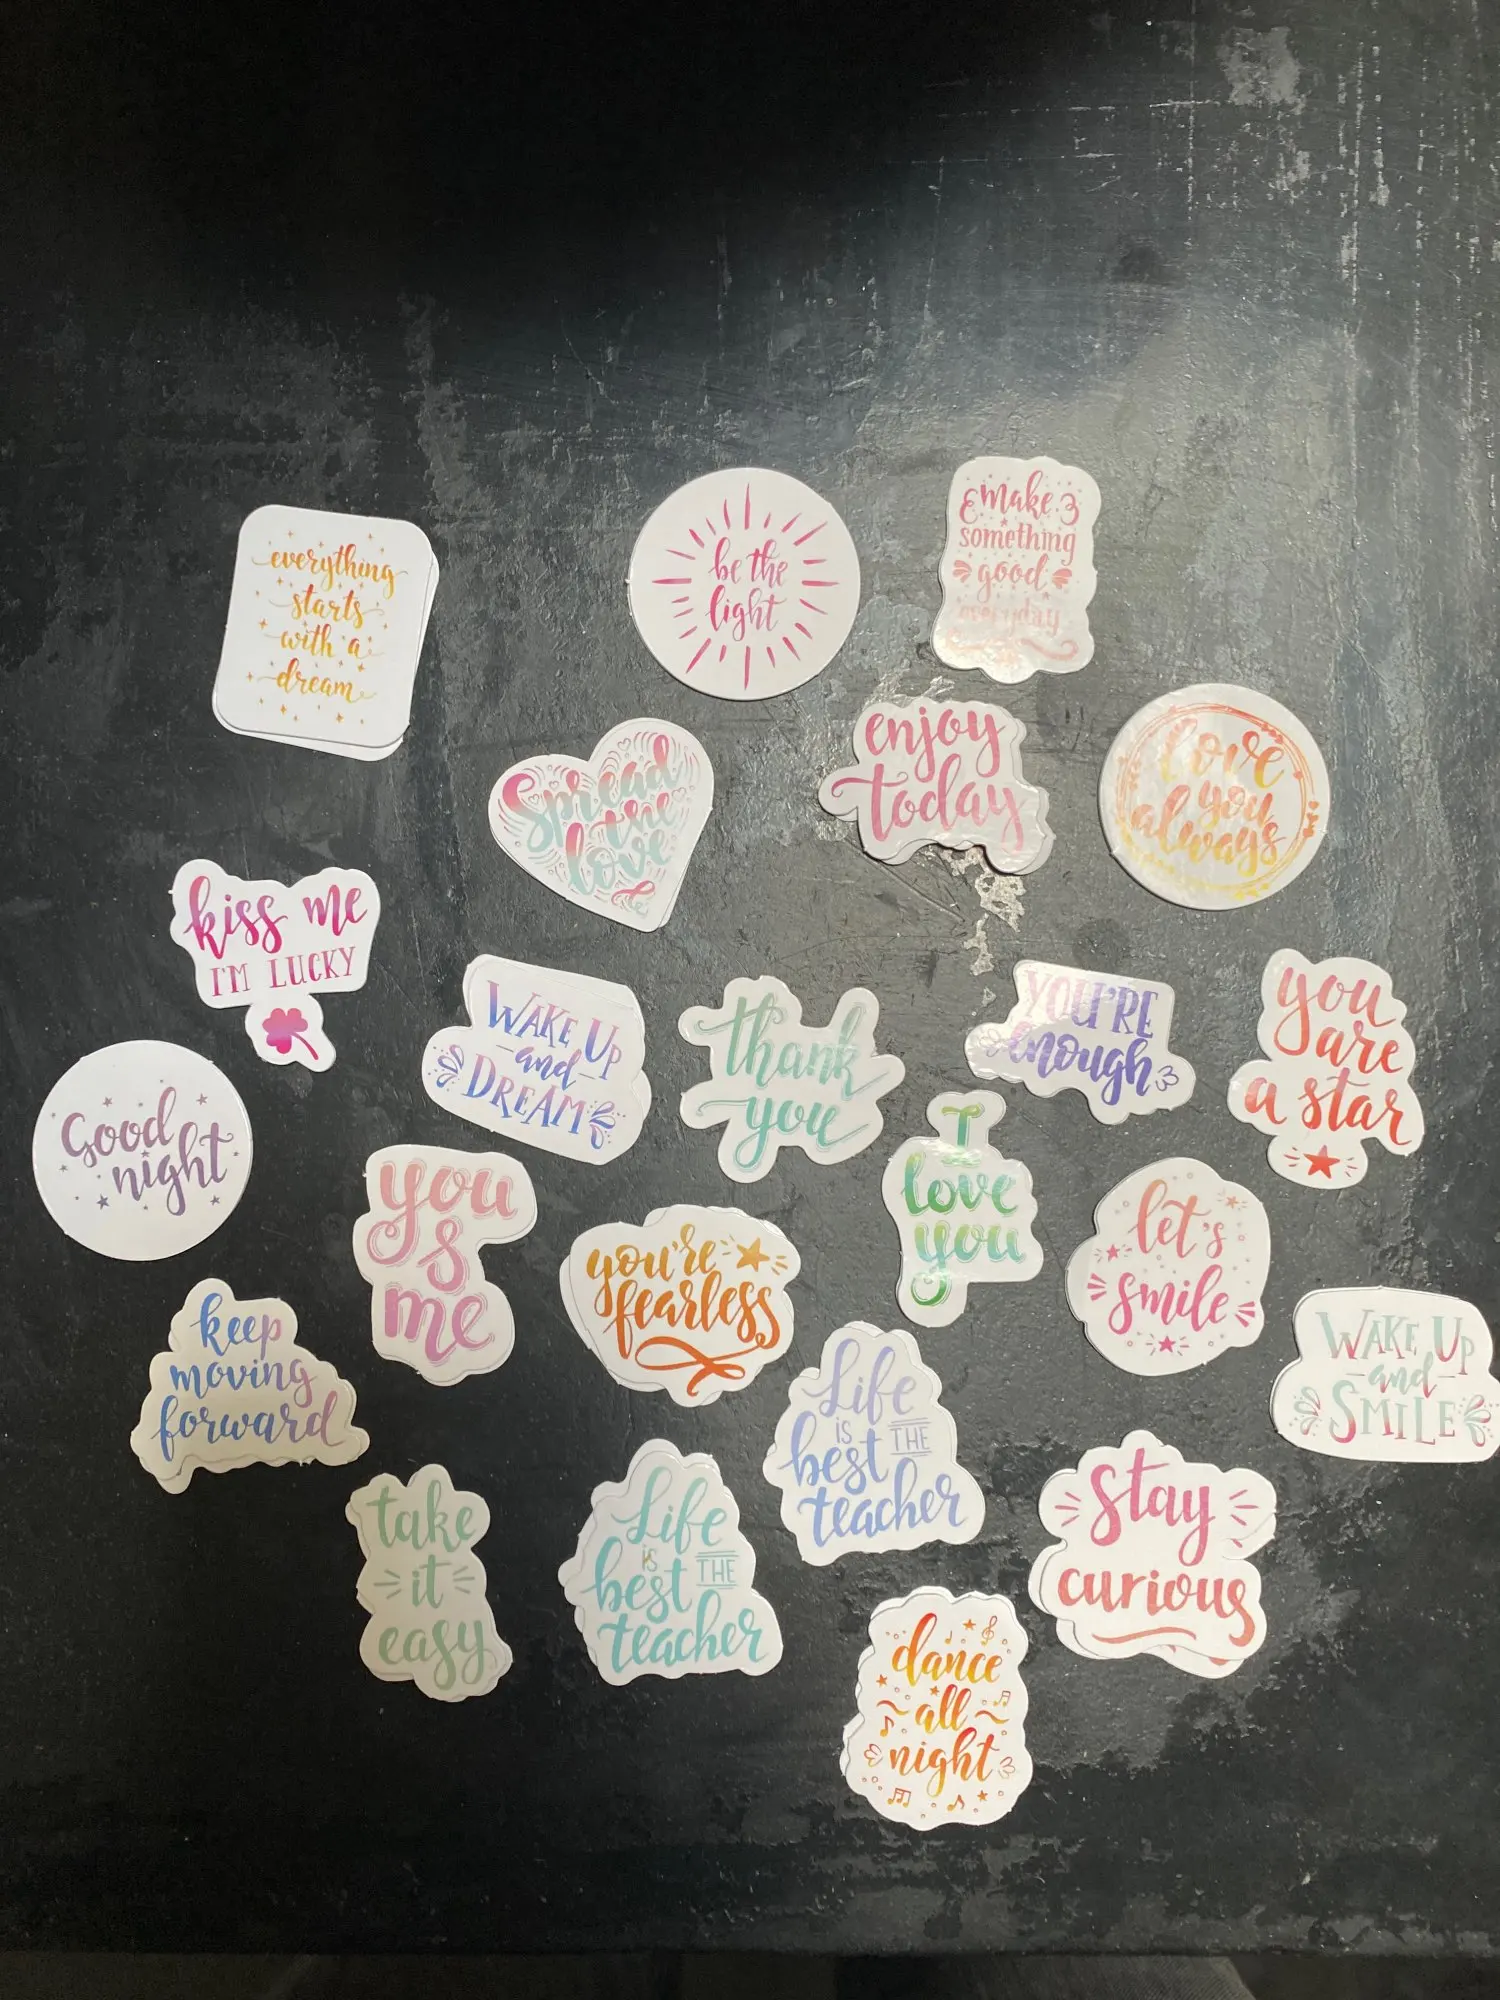 everything
starts
with a
dream
be the
light
make
something
good
everyday
Spread
the
love
enjoy
today
love
you
always
kiss me
I'M LUCKY
WAKE UP
and
DREAM
thank
you
YOU'RE
enough
you
are
a star
Good
night
you
&
me
you're
fearless
I
love
you
let's
smile
WAKE UP
and
SMILE
keep
moving
forward
Life
IS THE
best
teacher
stay
curious
take
it
easy
Life
IS THE
best
teacher
dance
all
night